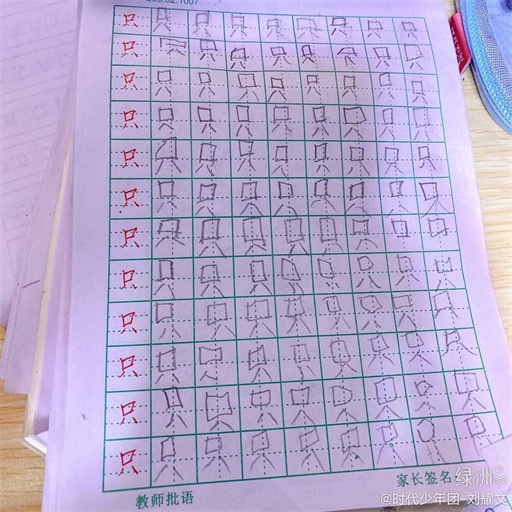 只只只只只只只只只
只只只只只只只只只
只只只只只只只只只
只只只只只只只只只
只只只只只只只只只
只只只只只只只只只
只只只只只只只只只
只只只只只只只只只
只只只只只只只只只
只只只只只只只只只
只只只只只只只只只
只只只只只只只只只
教师批语 家长签名
绿洲
@时代少年团-刘耀文